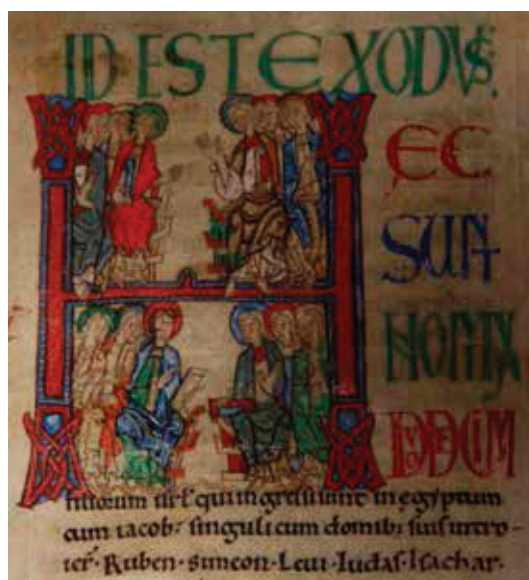 ID EST EXODVS.
H
EC
SUNT
NOMINA
filiorum isrl' qui ingressi sunt in egyptum
cum iacob: singuli cum domib: suis
Ruben · simeon · Leui · Iudas · Isachar ·